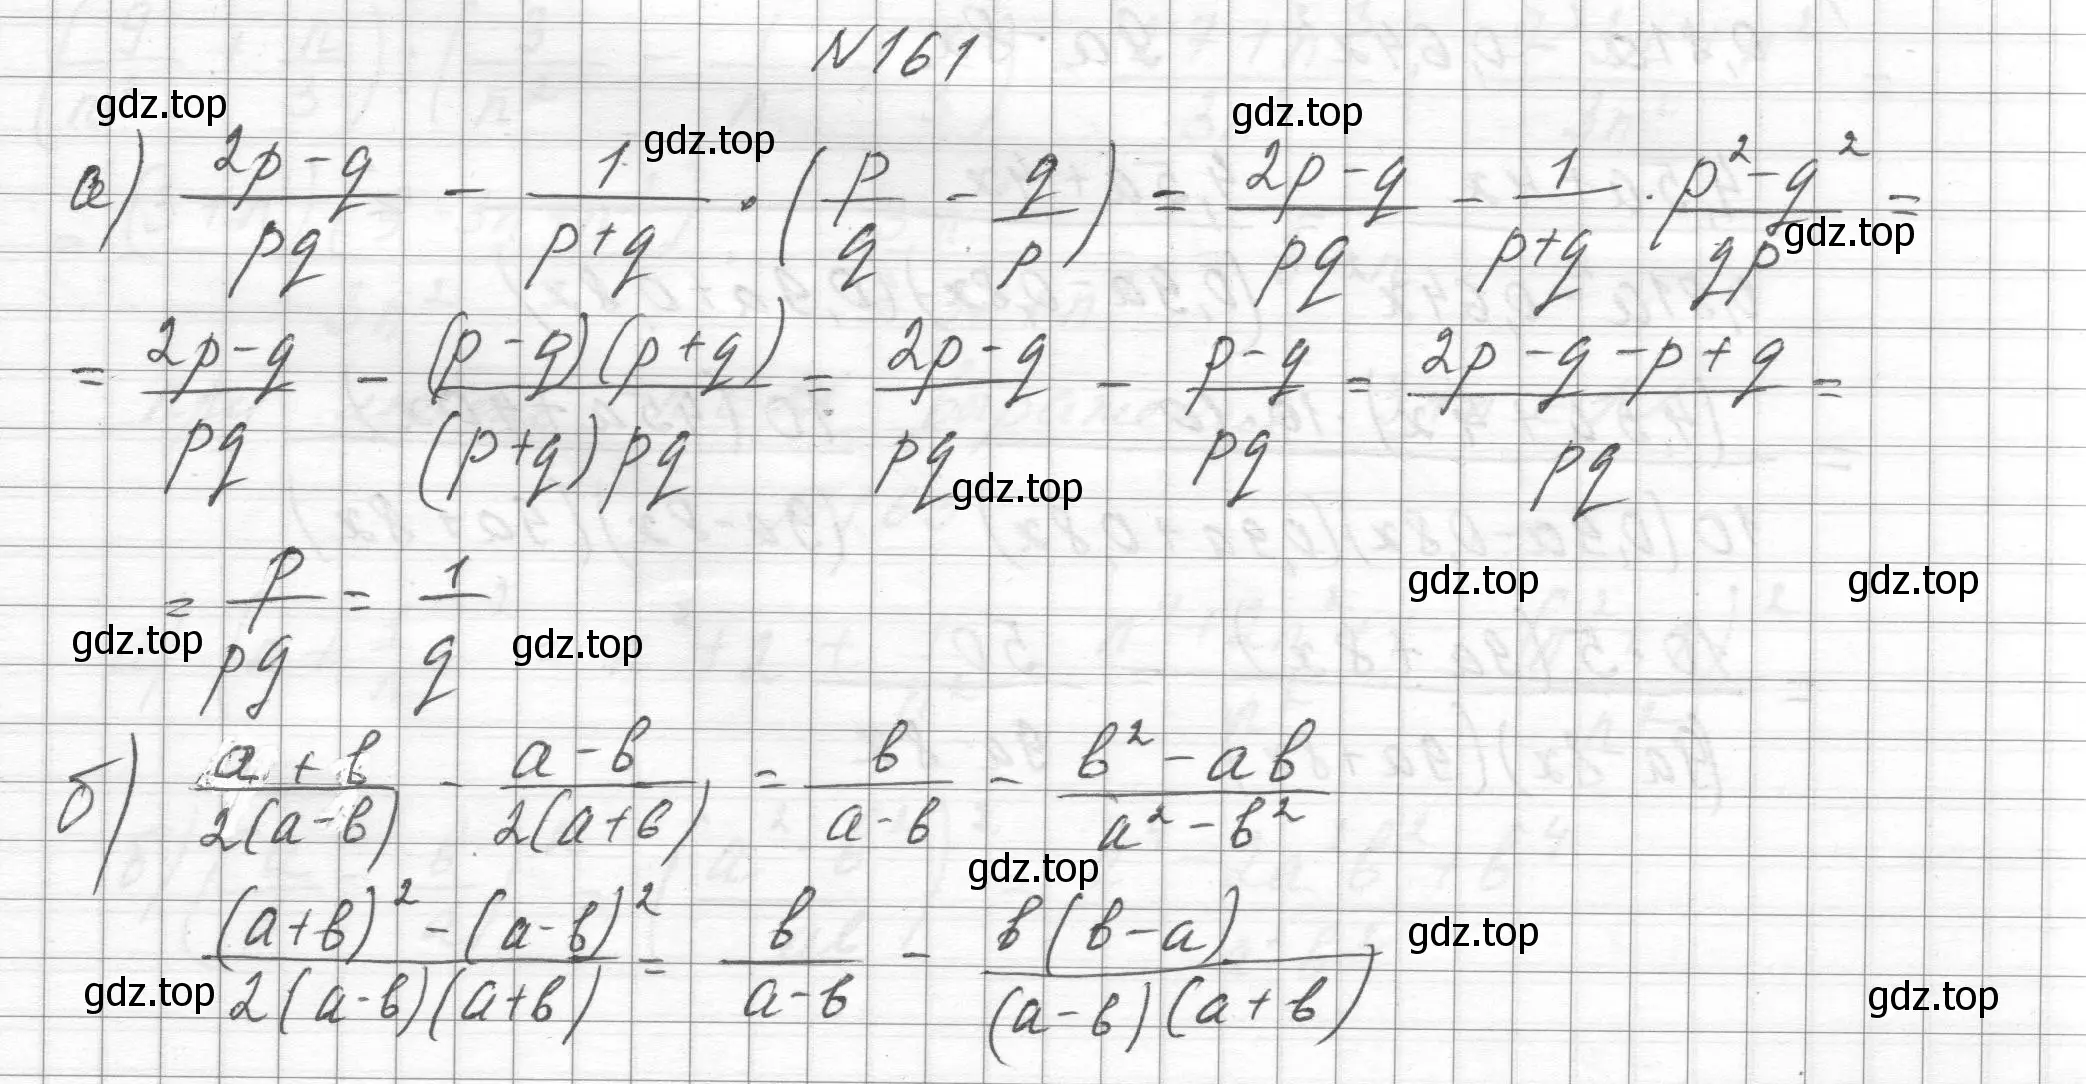 N161
gdz.top
gdz.top
gdz.top
а) (2p-q)/(pq) - 1/(p+q) · (p/q - q/p) = (2p-q)/(pq) - 1/(p+q) · (p²-q²)/(qp) =
gdz.top
= (2p-q)/(pq) - ((p-q)(p+q))/((p+q)pq) = (2p-q)/(pq) - (p-q)/(pq) = (2p-q-p+q)/(pq) =
gdz.top
gdz.top
gdz.top
= p/(pq) = 1/q
gdz.top
gdz.top
б) (a+b)/(2(a-b)) - (a-b)/(2(a+b)) = b/(a-b) - (b²-ab)/(a²-b²)
gdz.top
((a+b)²-(a-b)²)/(2(a-b)(a+b)) = b/(a-b) - (b(b-a))/((a-b)(a+b))
gdz.top
gdz.top
gdz.top